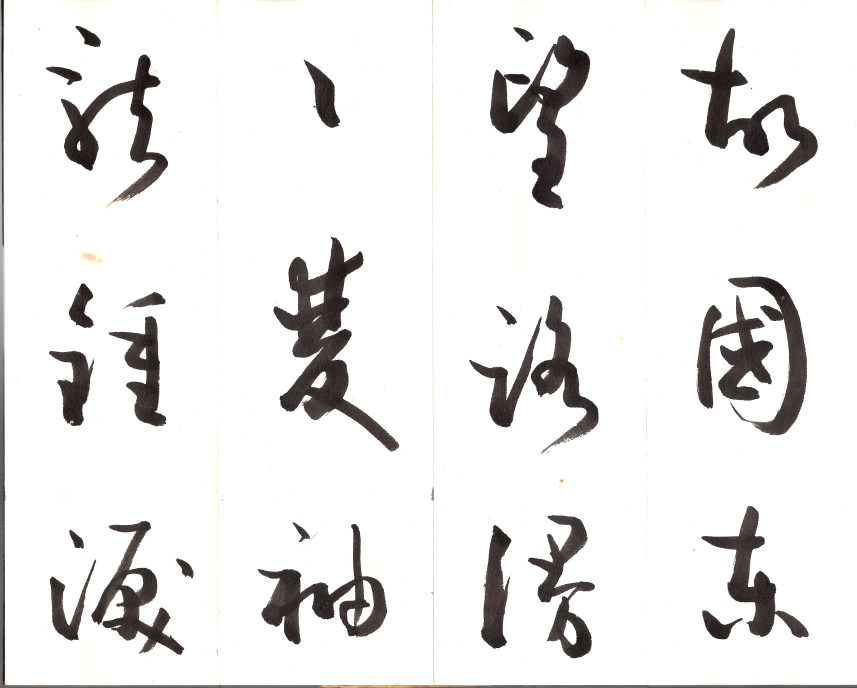 故園東
望路漫
ヽ雙袖
龍鍾淚